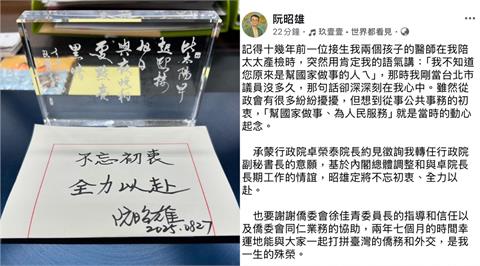 不忘初衷
全力以赴
阮昭雄
2025.0827
阮昭雄
22分鐘・玖壹壹・世界都看見・
記得十幾年前一位接生我兩個孩子的醫師在我陪
太太產檢時，突然用肯定我的語氣講：「我不知道
您原來是幫國家做事的人ㄟ」，那時我剛當台北市
議員沒多久，那句話卻深深刻在我心中。雖然從
政會有很多紛紛擾擾，但想到從事公共事務的初
衷，「幫國家做事、為人民服務」就是當時的動心
起念。
承蒙行政院卓榮泰院長約見徵詢我轉任行政院
副秘書長的意願，基於內閣總體調整和與卓院長
長期工作的情誼，昭雄定將不忘初衷、全力以
赴。
也要謝謝僑委會徐佳青委員長的指導和信任以
及僑委會同仁業務的協助，兩年七個月的時間幸
運地能與大家一起打拼臺灣的僑務和外交，是我
一生的殊榮。